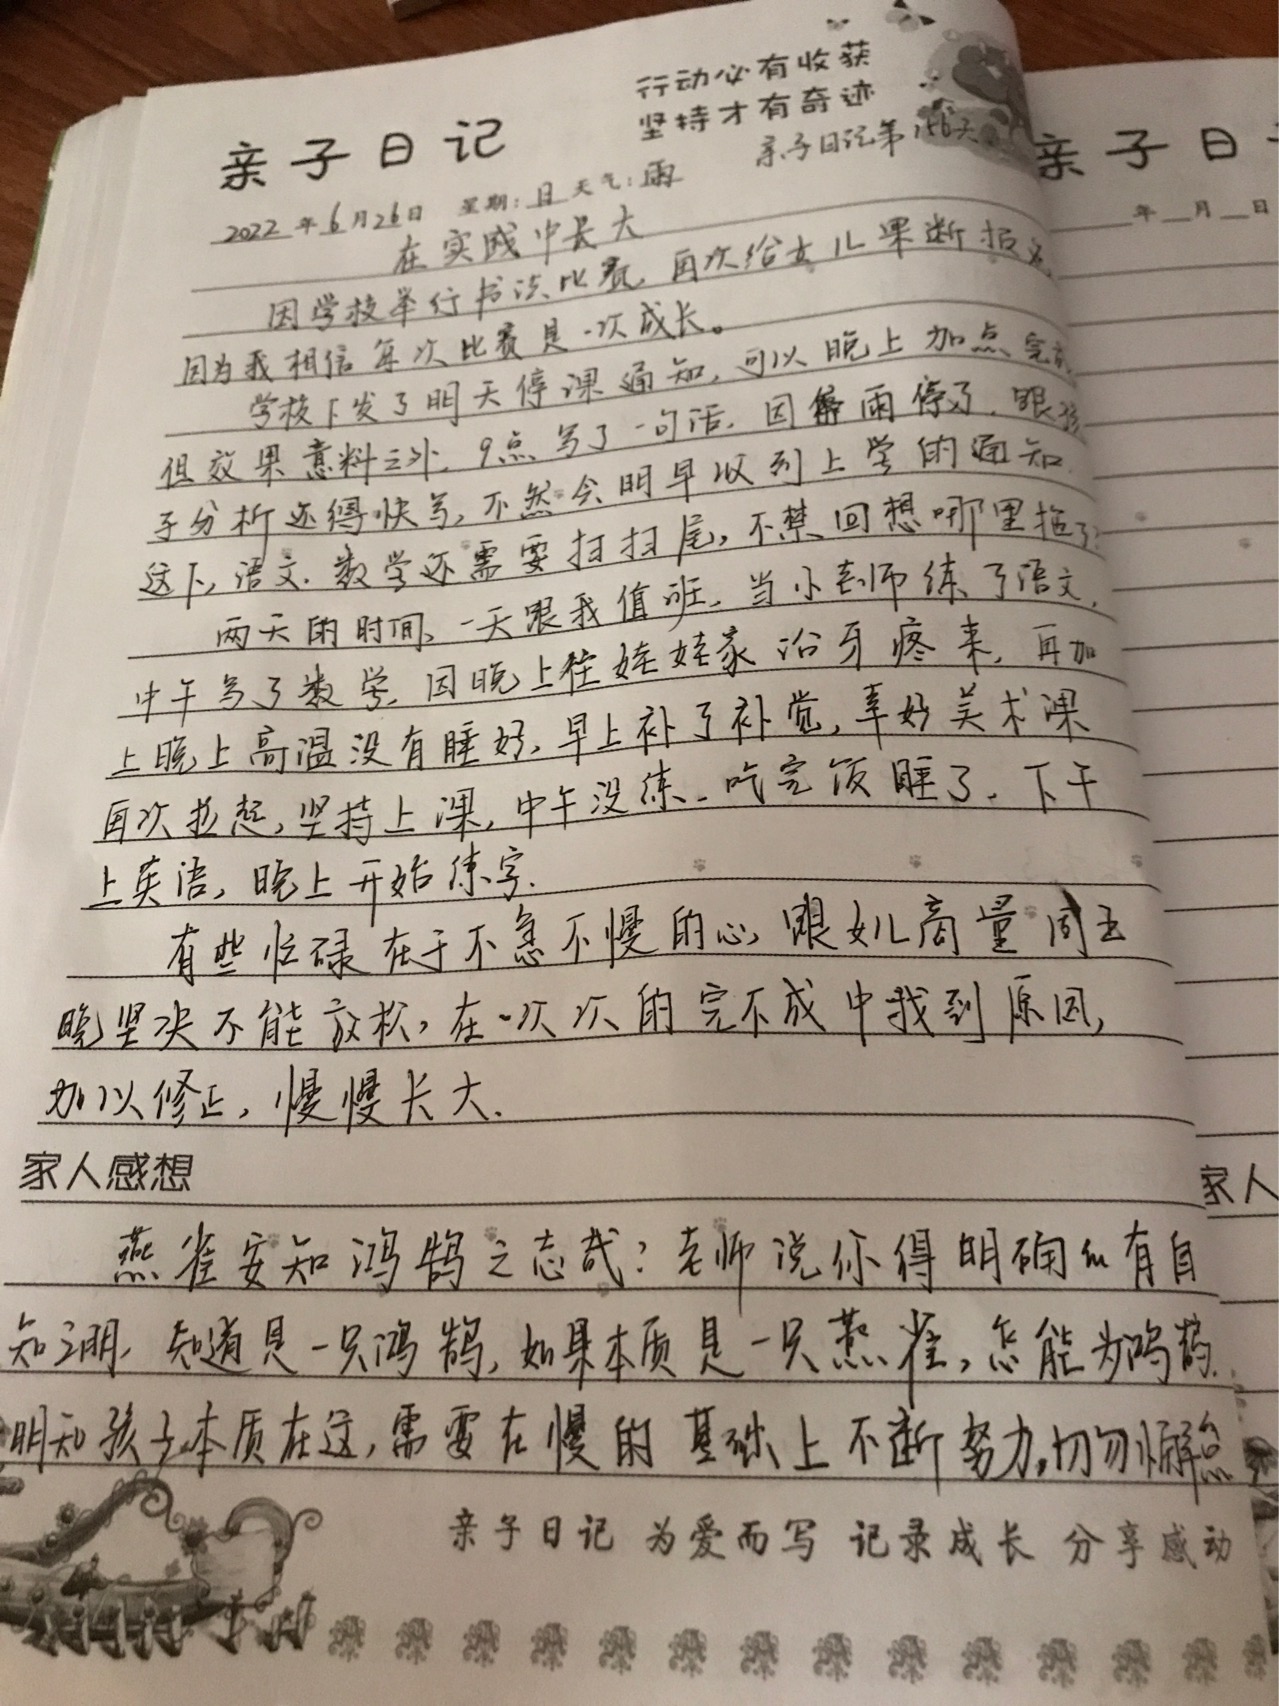 行动必有收获
坚持才有奇迹
亲子日记
亲子日记第156天
2022年6月26日 星期:日 天气:雨
在实践中长大
因学校举行书法比赛,再次给女儿果断报名,
因为我相信每次比赛是一次成长。
学校下发了明天停课通知,可以晚上加点完成,
但效果意料之外,9点写了一句话,因雨停了,跟孩
子分析还得快写,不然今明早收到上学的通知,
这下,语文、数学还需要扫扫尾,不禁回想哪里拖了?
两天的时间,一天跟我值班,当小老师练了语文,
中午写了数学,因晚上往娃娃家治牙疼来,再加
上晚上高温没有睡好,早上补了补觉,幸好美术课
再次拉起,坚持上课,中午没练,吃完饭睡了,下午
上英语,晚上开始练字.
有些忙碌在于不急不慢的心,跟女儿商量周五
晚坚决不能放松,在一次次的完不成中找到原因,
加以修正,慢慢长大.
家人感想
燕雀安知鸿鹄之志哉?老师说你得明确有自
知之明,知道是一只鸿鹄,如果本质是一只燕雀,怎能为鸿鹄.
明知孩子本质在这,需要在慢的基础上不断努力,切勿懈
亲子日记 为爱而写 记录成长 分享感动
亲子日
年 月 日
家人